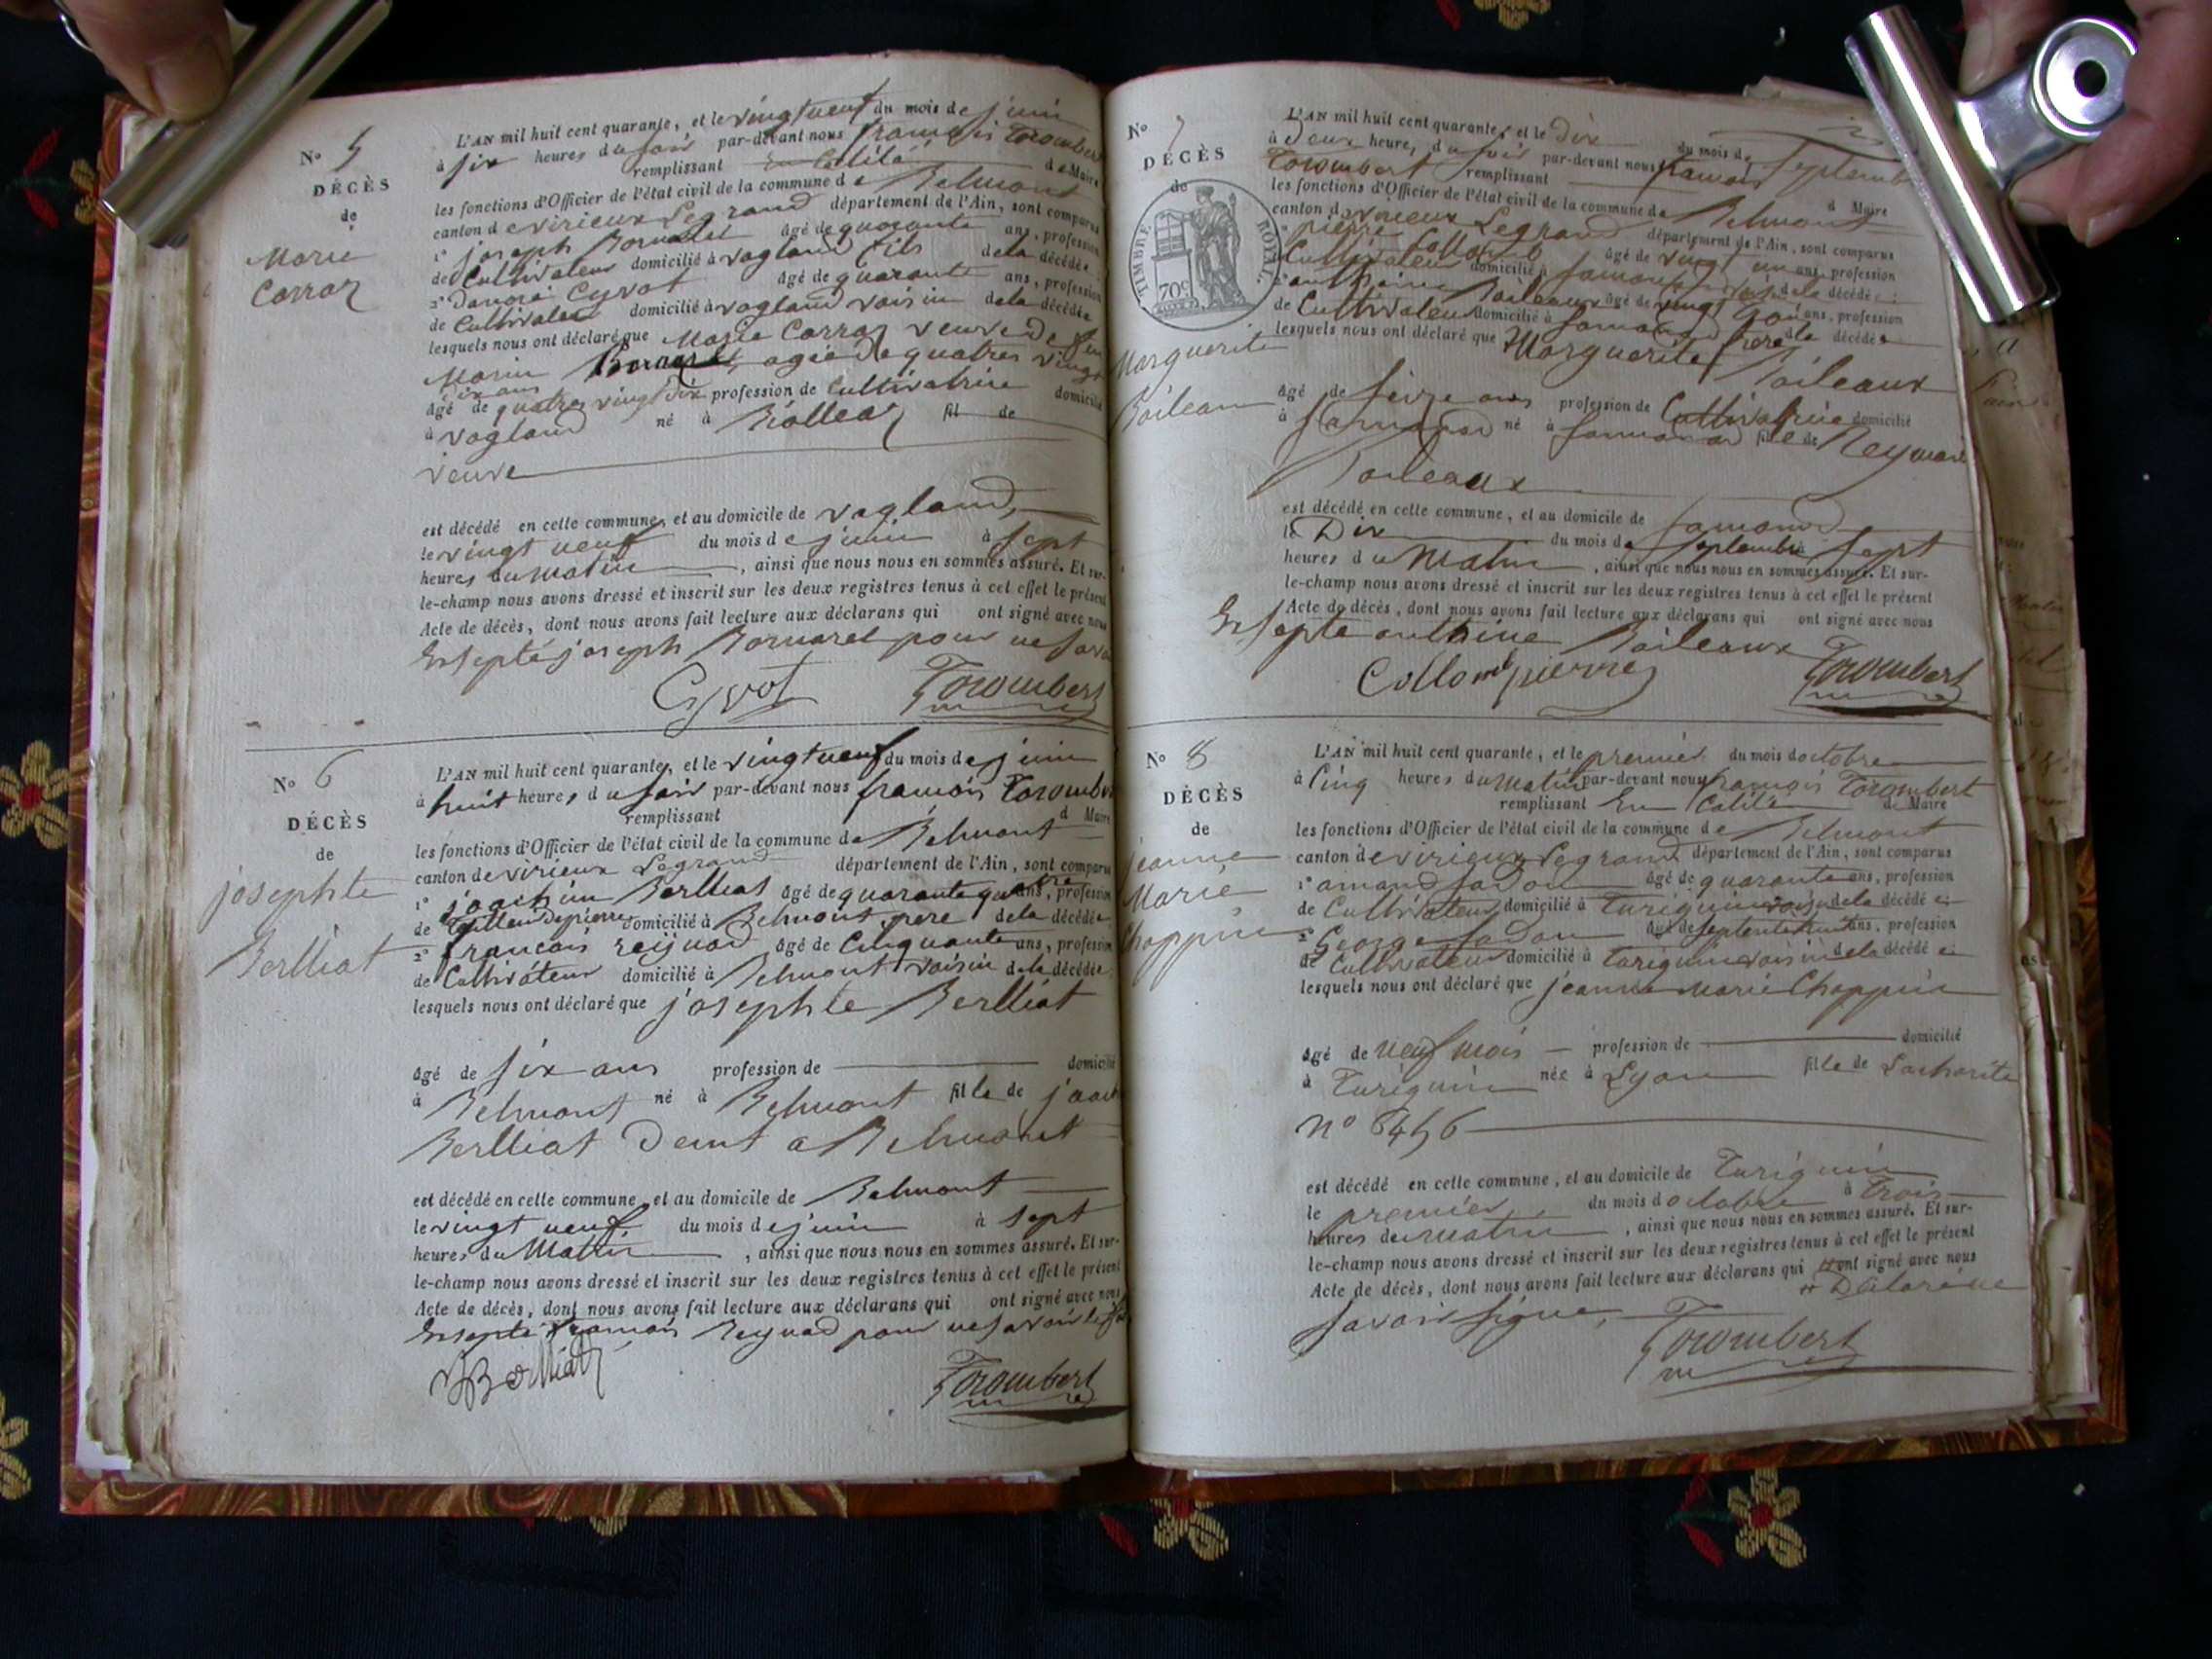 N° 5
DÉCÈS
de
Marie
Carraz
L'AN mil huit cent quarante, et le vingt neuf du mois de juin
à six heures du soir par-devant nous françois Trombert
remplissant En Calité de Maire
les fonctions d'Officier de l'état civil de la commune de Belmont
canton de virieux Legrand département de l'Ain, sont comparus
1° joseph Bornarel âgé de quarante ans, profession
de Cultivateur domicilié à vogland fils de la décédée
2° Cyvot âgé de quarante ans, profession
de Cultivateur domicilié à vogland voisin de la décédée
lesquels nous ont déclaré que Marie Carraz veuve de feu
Marin agée de quatres vingt
dix ans
âgé de quatres vingt dix profession de Cultivatrice domicilié
à vogland né à fil de
veuve
est décédé en cette commune, et au domicile de vogland,
le vingt neuf du mois de juin à sept
heures du matin, ainsi que nous nous en sommes assuré. Et sur-
le-champ nous avons dressé et inscrit sur les deux registres tenus à cet effet le présent
Acte de décès, dont nous avons fait lecture aux déclarans qui ont signé avec nous
Exsepté joseph Bornarel pour ne savoir
Cyvot Trombert
N° 6
DÉCÈS
de
josephte
Berlliat
L'AN mil huit cent quarante, et le vingt neuf du mois de juin
à huit heures du soir par-devant nous françois Trombert
remplissant d Maire
les fonctions d'Officier de l'état civil de la commune de Belmont
canton de virieux Legrand département de l'Ain, sont comparus
1° joachim Berlliat âgé de quarante quatre ans, profession
de tailleur de pierre domicilié à Belmont pere de la décédée
2° francois reynod âgé de Cinquante ans, profession
de Cultivateur domicilié à Belmont voisin de la décédée
lesquels nous ont déclaré que josephte Berlliat
âgé de six ans profession de domicilié
à Belmont né à Belmont fille de
Berlliat a Belmont
est décédé en cette commune, et au domicile de Belmont
le vingt neuf du mois de juin à sept
heures du Matin, ainsi que nous nous en sommes assuré. Et sur-
le-champ nous avons dressé et inscrit sur les deux registres tenus à cet effet le présent
Acte de décès, dont nous avons fait lecture aux déclarans qui ont signé avec nous
Exsepté francois Reynod pour ne savoir
Berlliat Trombert
N° 7
DÉCÈS
de
TIMBRE ROYAL.
70c
Marguerite
Boileau
L'AN mil huit cent quarante, et le Dix du mois de Septembre
à Deux heure, du soir par-devant nous francois
Trombert remplissant d Maire
les fonctions d'Officier de l'état civil de la commune de Belmont
canton de virieux Legrand département de l'Ain, sont comparus
1° pierre Collomb âgé de vingt un ans, profession
Cultivateur domicilié à de la décédée
2° anthoine Boileaux âgé de vingt ans, profession
de Cultivateur domicilié à frere de la décédée
lesquels nous ont déclaré que Marguerite Boileaux
âgé de seize ans profession de Cultivatrice domicilié
à né à fille de
Boileaux
est décédé en cette commune, et au domicile de
le Dix du mois de septembre sept
heures du Matin, ainsi que nous nous en sommes assuré. Et sur-
le-champ nous avons dressé et inscrit sur les deux registres tenus à cet effet le présent
Acte de décès, dont nous avons fait lecture aux déclarans qui ont signé avec nous
Exsepté anthoine Boileaux
Collomb pierre Trombert
N° 8
DÉCÈS
de
jeanne
Marie
Choppin
L'AN mil huit cent quarante, et le premier du mois doctobre
à Cinq heures du matin par-devant nous françois Trombert
remplissant En Calité de Maire
les fonctions d'Officier de l'état civil de la commune de Belmont
canton de virieux Legrand département de l'Ain, sont comparus
1° amand âgé de quarante ans, profession
de Cultivateur domicilié à voisin de la décédée
2° George âgé de ans, profession
de Cultivateur domicilié à voisin de la décédée
lesquels nous ont déclaré que jeanne marie Choppin
âgé de neuf mois profession de domicilié
à née à Lyon fille de Lacharité
n° 6456
est décédé en cette commune, et au domicile de
le premier du mois doctobre à trois
heures du matin, ainsi que nous nous en sommes assuré. Et sur-
le-champ nous avons dressé et inscrit sur les deux registres tenus à cet effet le présent
Acte de décès, dont nous avons fait lecture aux déclarans qui ont signé avec nous
savoir signer,
Trombert